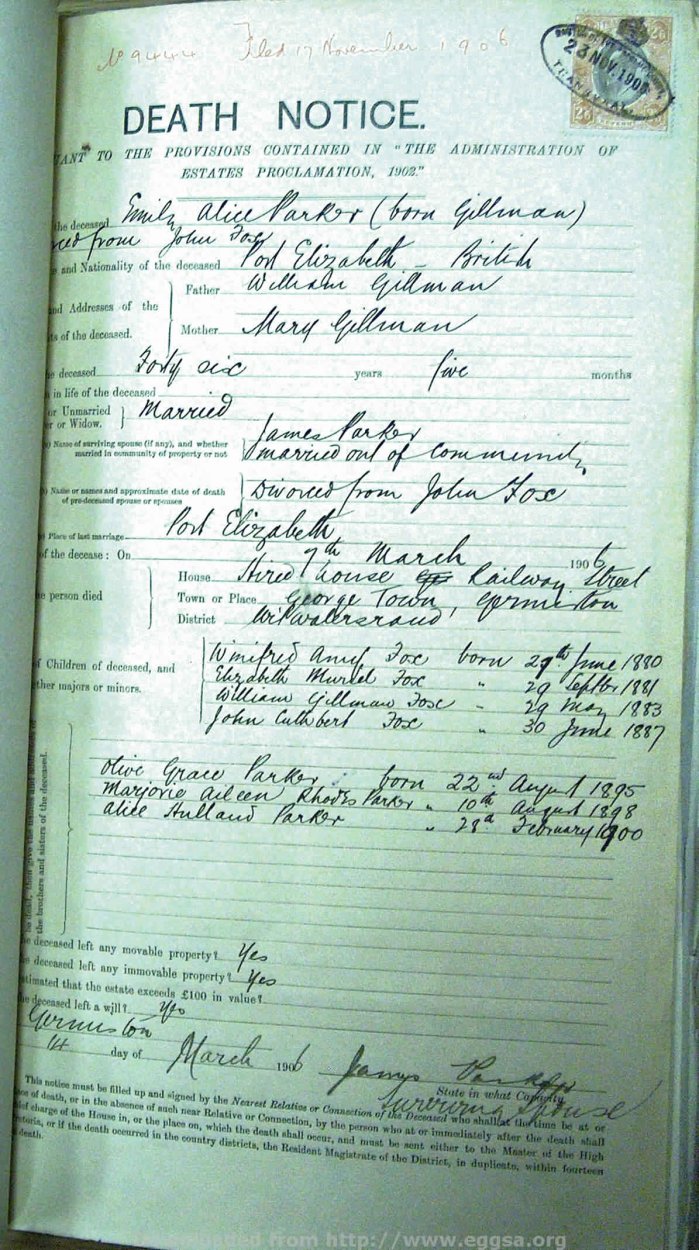 No 9444 Filed 17 November 1906
23 NOV. 1906
TRANSVAAL
DEATH NOTICE.
UANT TO THE PROVISIONS CONTAINED IN "THE ADMINISTRATION OF
ESTATES PROCLAMATION, 1902."
the deceased Emily Alice Parker (born Gillman)
from John Fox
and Nationality of the deceased Port Elizabeth - British
Father William Gillman
and Addresses of the
ts of the deceased.
Mother Mary Gillman
deceased Forty six years five months
in life of the deceased
or Unmarried
er or Widow.
Married
Name of surviving spouse (if any), and whether
married in community of property or not
James Parker
married out of Community
Name or names and approximate date of death
of pre-deceased spouse or spouses
Divorced from John Fox
Place of last marriage Port Elizabeth
of the decease: On 7th March 1906
House Hired house Railway Street
e person died
Town or Place George Town, Germiston
District Witwatersrand
f Children of deceased, and
ther majors or minors.
Winifred Amy Fox born 29th June 1880
Elizabeth Muriel Fox " 29 Septbr 1881
William Gillman Fox " 29 May 1883
John Cuthbert Fox " 30 June 1887
the brothers and sisters of the deceased.
Olive Grace Parker born 22nd August 1895
Marjorie Aileen Rhodes Parker " 10th August 1898
Alice Hulland Parker " 28th February 1900
e deceased left any movable property? Yes
e deceased left any immovable property? Yes
stimated that the estate exceeds £100 in value?
he deceased left a will? Yes
Germiston
14 day of March 1906 James Parker
State in what Capacity
Surviving Spouse
This notice must be filled up and signed by the Nearest Relative or Connection of the Deceased who shall at the time be at or
ace of death, or in the absence of such near Relative or Connection, by the person who at or immediately after the death shall
ief charge of the House in, or the place on, which the death shall occur, and must be sent either to the Master of the High
retoria, or if the death occurred in the country districts, the Resident Magistrate of the District, in duplicate, within fourteen
death.
from http://www.eggsa.org